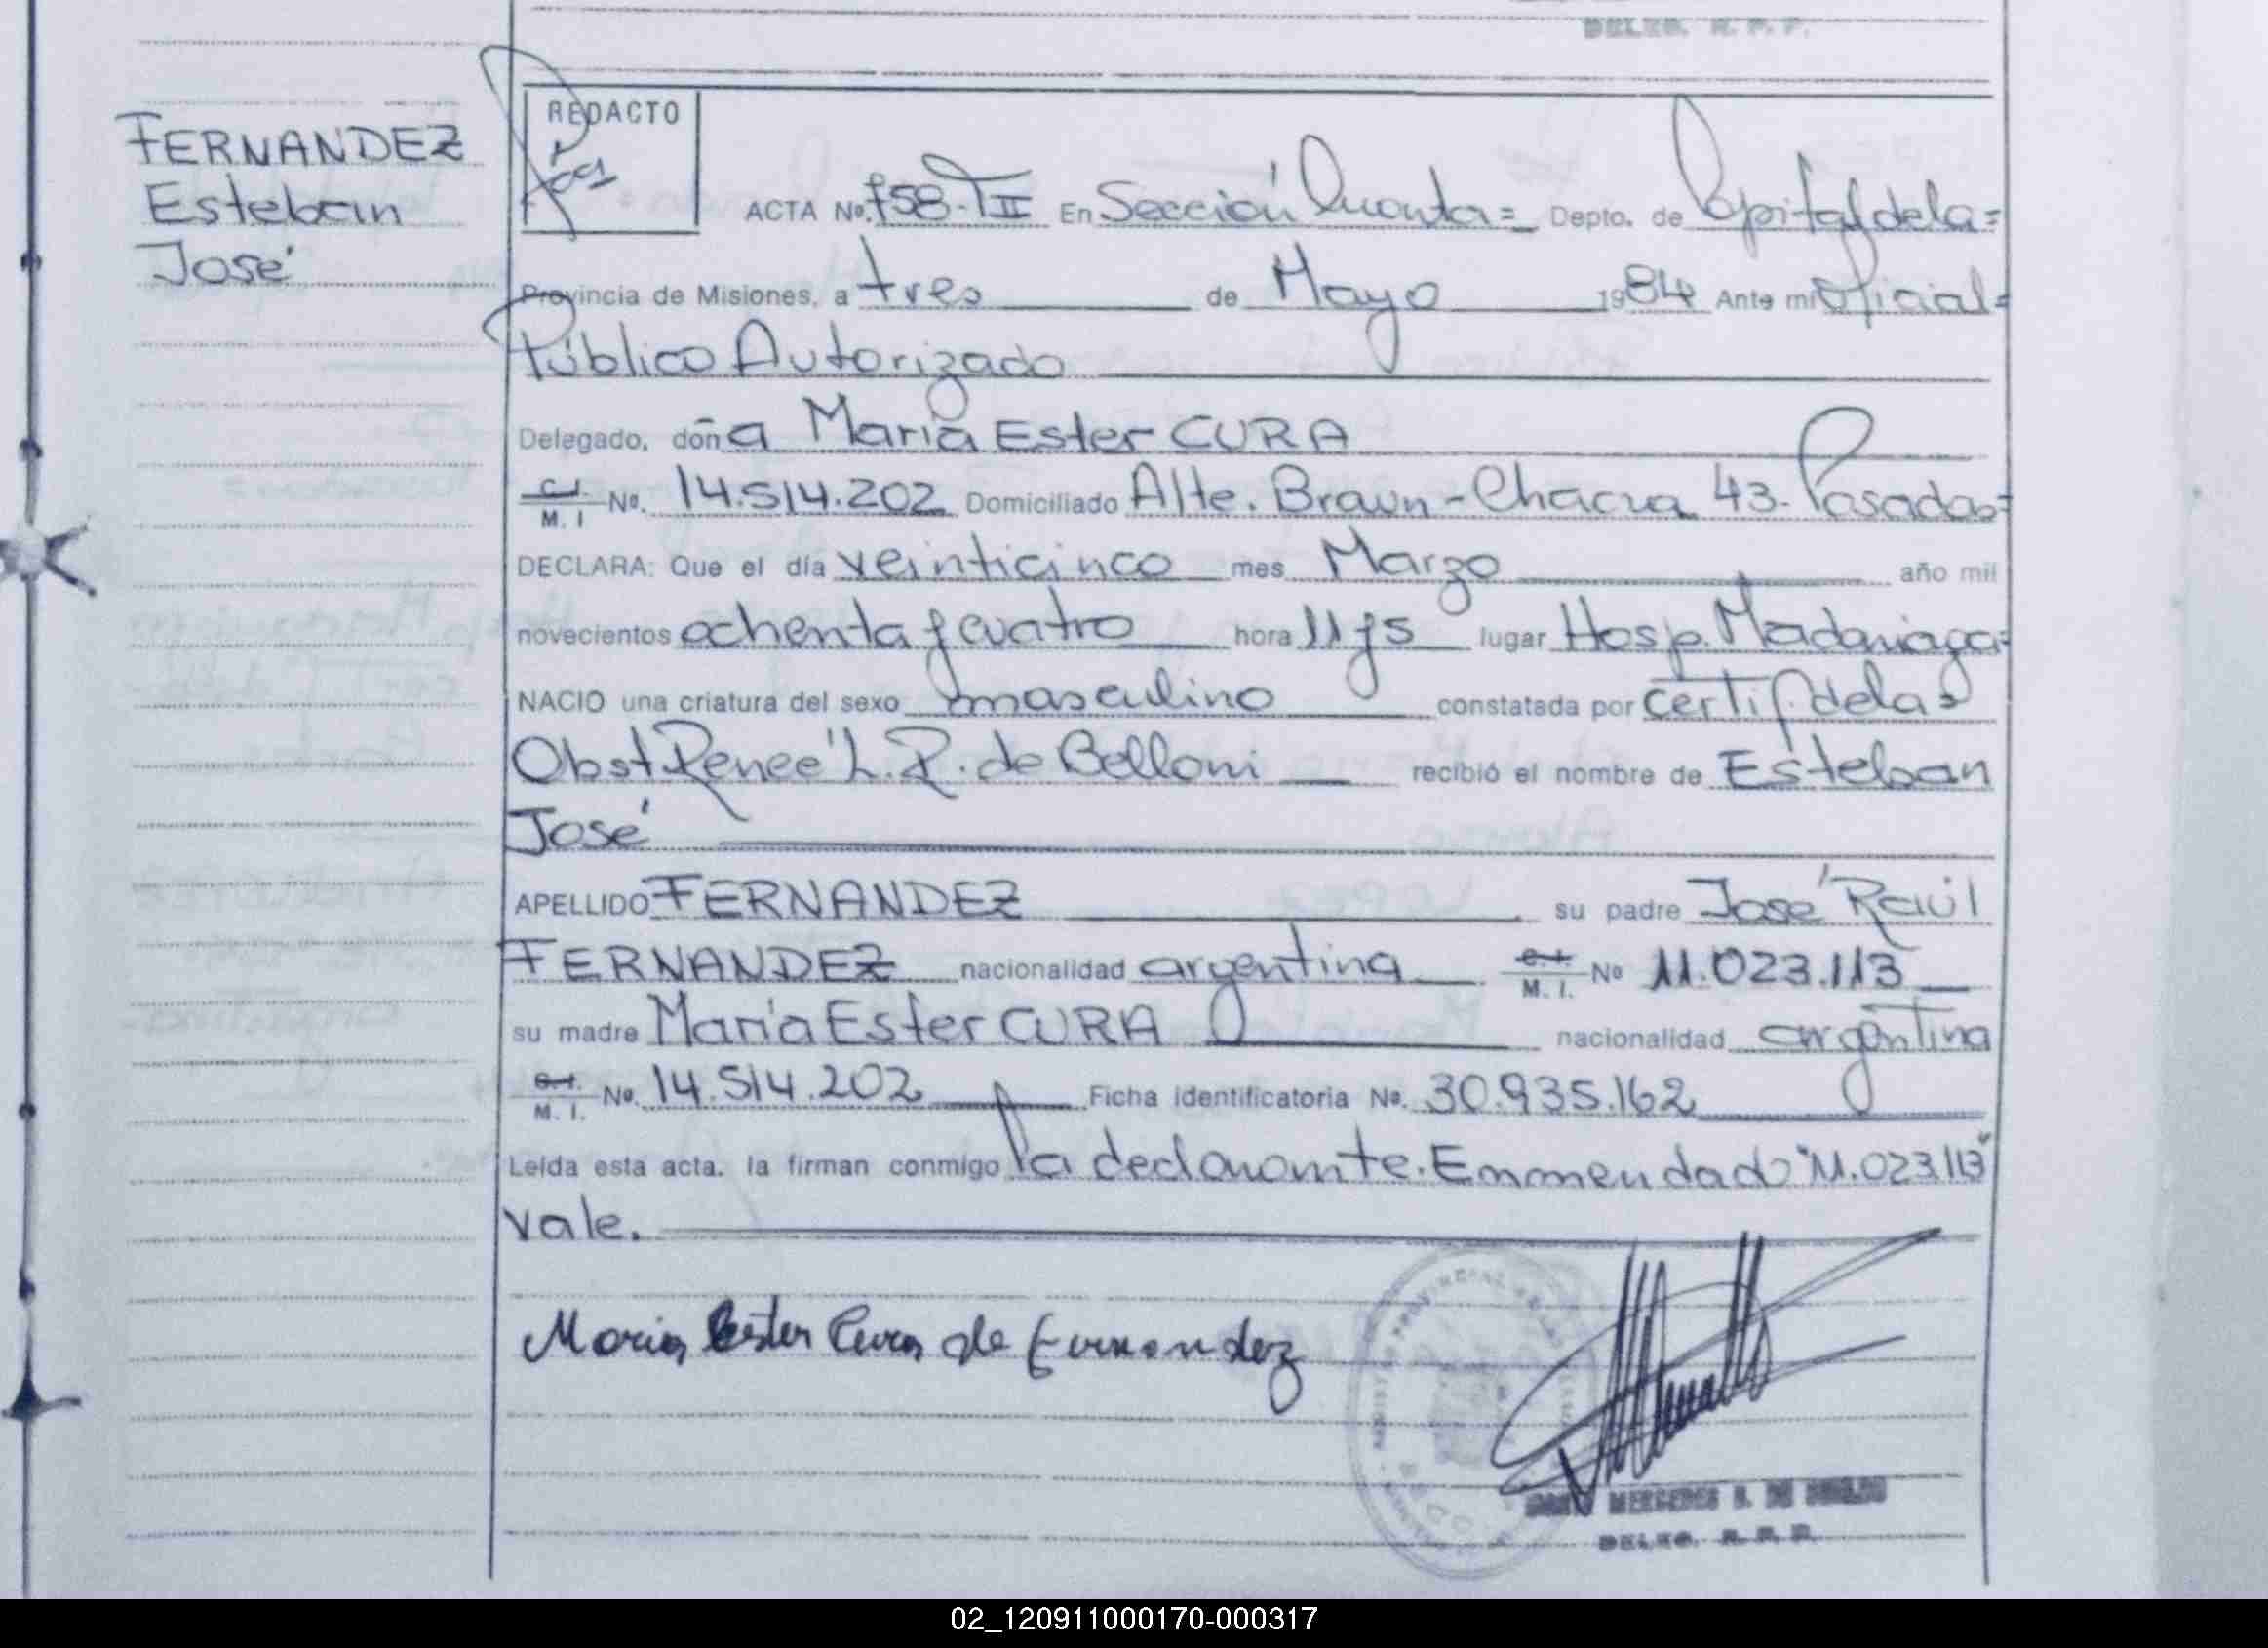 DELEG. R. P. P.
FERNANDEZ
Esteban
José
REDACTO
ACTA No. 758-TII En Sección Cuarta= Depto. de Capital de la=
Provincia de Misiones, a tres de Mayo 1984 Ante mi Oficial=
Público Autorizado
Delegado, doña María Ester CURA
C.I. M. I No. 14.514.202 Domiciliado Alte. Brown-Chacra 43. Posadas=
DECLARA: Que el día veinticinco mes Marzo año mil
novecientos ochenta y cuatro hora 11 y 5 lugar Hosp. Madariaga=
NACIO una criatura del sexo masculino constatada por certif. de la=
Obst Reneé L. R. de Belloni recibió el nombre de Esteban
José
APELLIDO FERNANDEZ su padre José Raúl
FERNANDEZ nacionalidad argentina C.I. M. I. No 11.023.113
su madre María Ester CURA nacionalidad argentina
C.I. M. I. No. 14.514.202 Ficha identificatoria No. 30.935.162
Leída esta acta. la firman conmigo la declarante. Enmendado "11.023.113"
vale.
Maria Ester Cura de Fernandez
MERCEDES
DELEG. R. P. P.
02_120911000170-000317